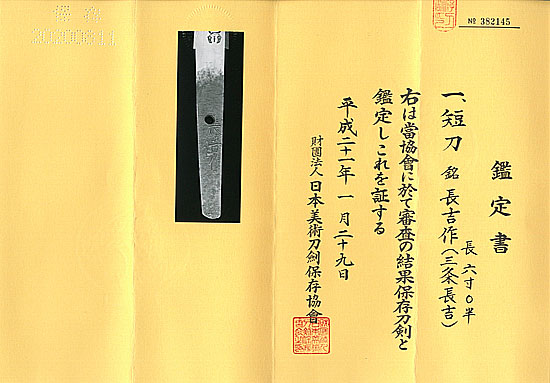 № 382145
鑑定書
一、短刀 銘 長吉作(三条長吉)
長 六寸〇半
右は當協會に於て審査の結果保存刀剣と
鑑定しこれを証する
平成二十一年 一月二十九日
財團法人 日本美術刀劍保存協會